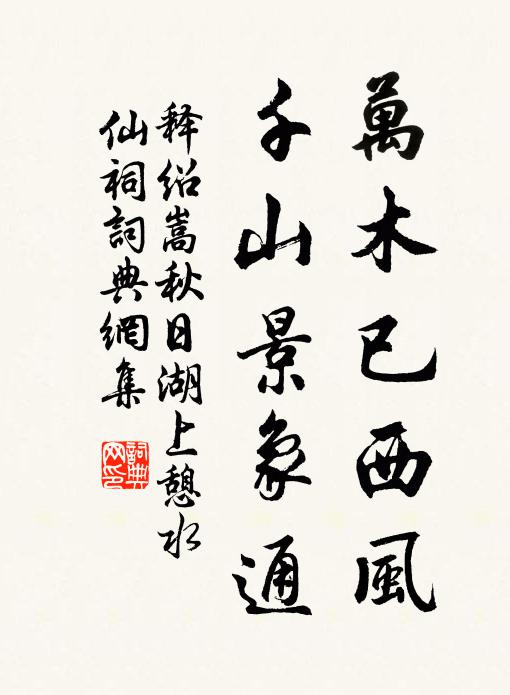 萬木已西風
千山景象通
释绍嵩秋日湖上憩水
仙祠詞典網集
詞典網印